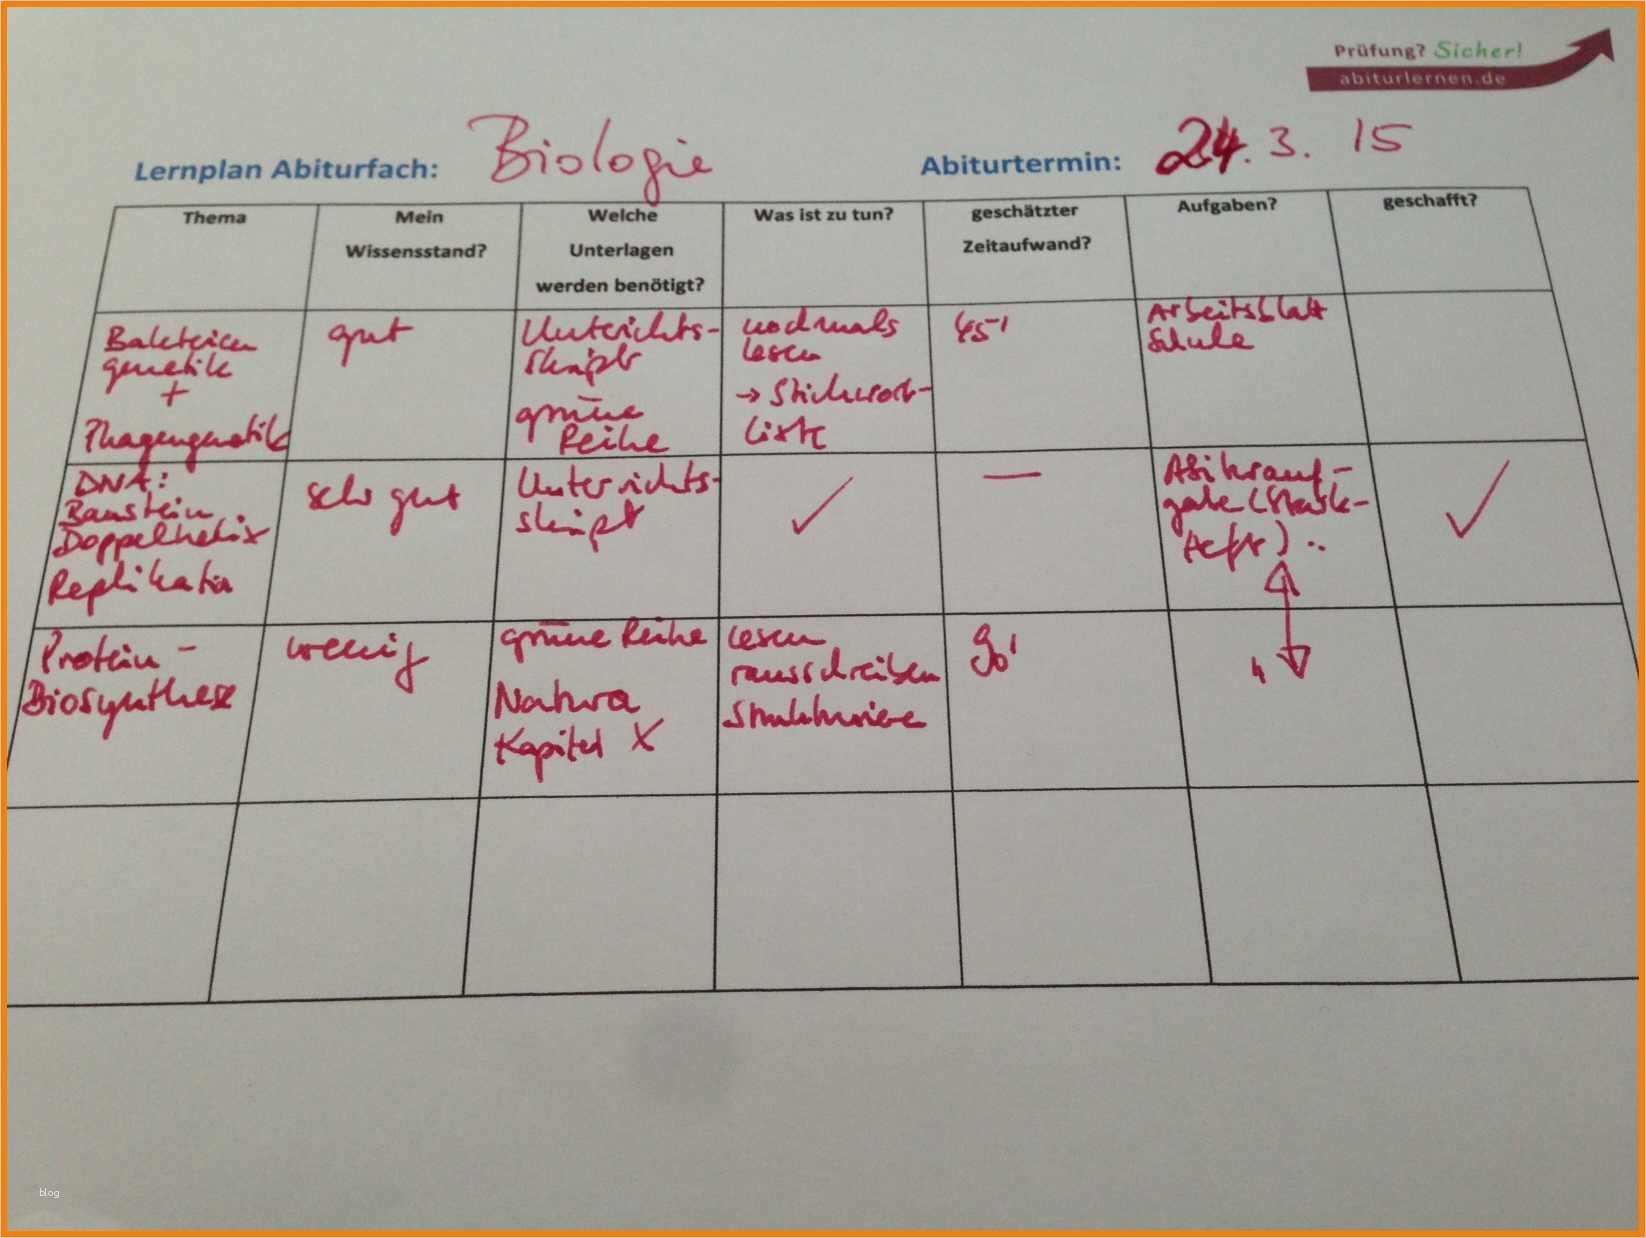 Prüfung? Sicher!
abiturlernen.de
Lernplan Abiturfach: Biologie
Abiturtermin: 24. 3. 15
Thema
Mein
Wissensstand?
Welche
Unterlagen
werden benötigt?
Was ist zu tun?
geschätzter
Zeitaufwand?
Aufgaben?
geschafft?
Bakterien
genetik
+
Phagengenetik
gut
Unterichts-
skript
grüne
Reihe
nochmals
lesen
→ Stichwort-
liste
45'
Arbeitsblatt
Schule
DNA:
Baustein
Doppelhelix
Replikation
sehr gut
Unterrichts-
skript
✓
—
Abiturauf-
gabe (Stark-
Heft) ..
✓
Protein-
Biosynthese
wenig
grüne Reihe
Natura
Kapitel X
lesen
rausschreiben
90'
blog